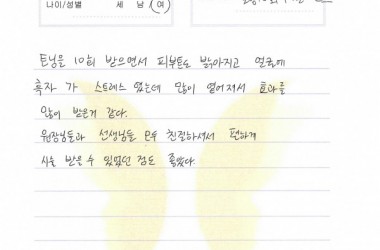 나이/성별 세 남 여
토닝을 10회 받으면서 피부톤도 밝아지고 얼굴에
흑자 가 스트레스 였는데 많이 옅어져서 효과를
많이 받은거 같다.
원장님들과 선생님들 모두 친절하셔서 편하게
시술 받을 수 있었던 점도 좋았다.